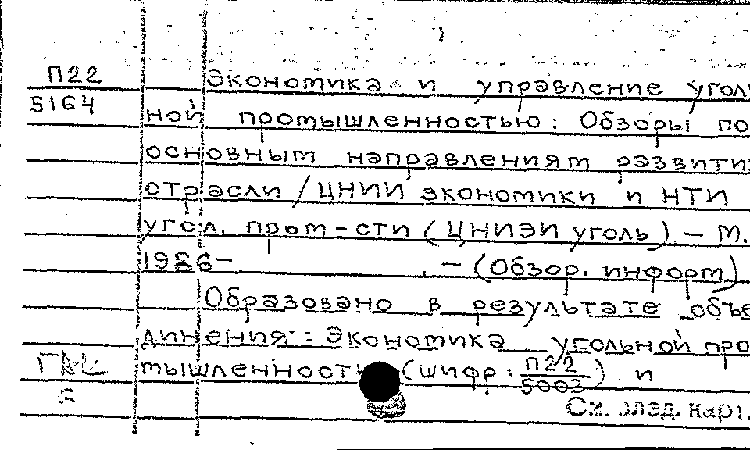 П22 Экономика и управление уголь
5164 ной промышленностью: Обзоры по
основным направлениям развити
отрасли / ЦНИИ экономики и НТИ
угол. пром-сти (ЦНИЭИ уголь). — М.
1986- . — (Обзор. информ)
Образовано в результате объе
динения: Экономика угольной про
мышленност (шифр: П22/5003) и
См. след. карт.